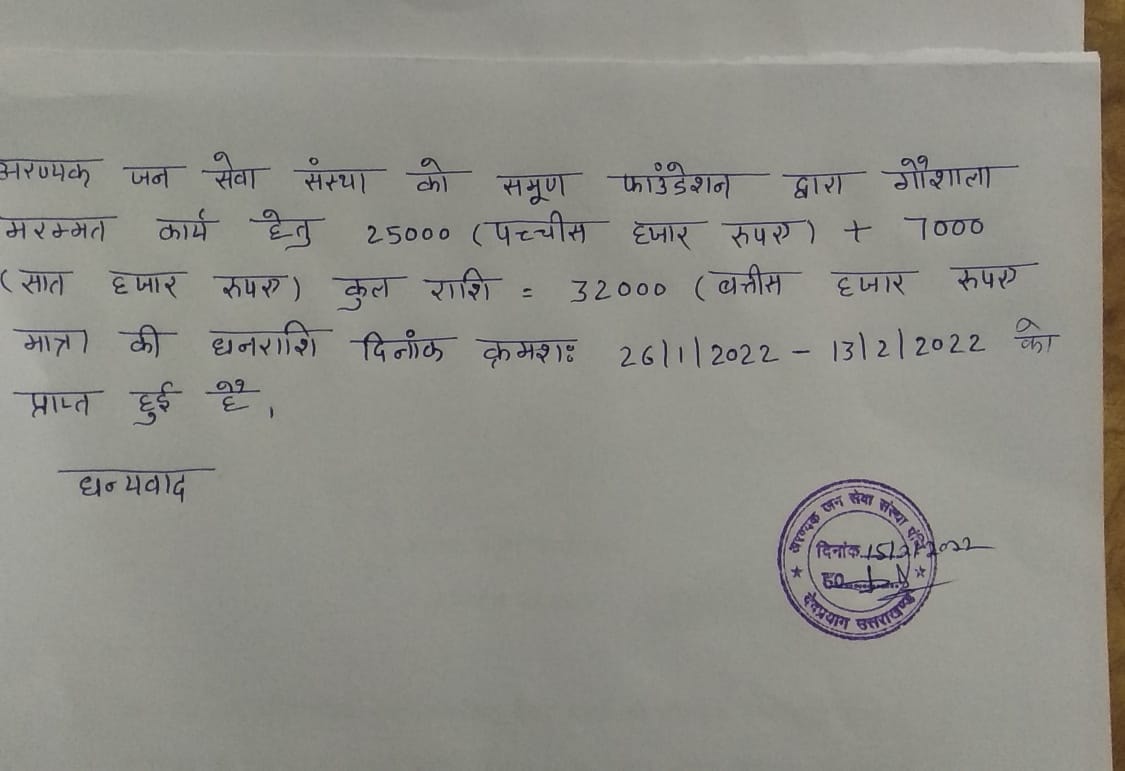 अरण्यक जन सेवा संस्था को समूण फाउंडेशन द्वारा गौशाला
मरम्मत कार्य हेतु 25000 (पच्चीस हजार रुपए) + 7000
(सात हजार रुपए) कुल राशि = 32000 (बत्तीस हजार रुपए
मात्र) की धनराशि दिनांक क्रमशः 26/1/2022 - 13/2/2022 को
प्राप्त हुई है,
धन्यवाद
अरण्यक जन सेवा संस्था
दिनांक 15/2/2022
ह०
देवप्रयाग उत्तराखण्ड